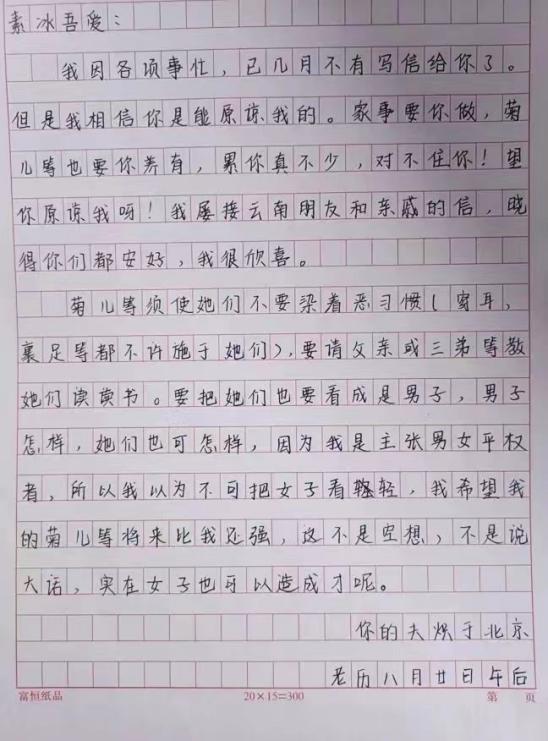 素冰吾爱：
我因各项事忙，已几月不有写信给你了。
但是我相信你是能原谅我的。家事要你做，菊
儿等也要你养育，累你真不少，对不住你！望
你原谅我呀！我屡接云南朋友和亲戚的信，晓
得你们都安好，我很欣喜。
菊儿等须使她们不要染着恶习惯（窜耳，
裹足等都不许施于她们），要请父亲或三弟等教
她们读读书。要把她们也要看成是男子，男子
怎样，她们也可怎样，因为我是主张男女平权
者，所以我以为不可把女子看轻，我希望我
的菊儿等将来比我还强，这不是空想，不是说
大话，实在女子也可以造成才呢。
你的夫焕于北京
老历八月廿日午后
富恒纸品 20×15=300 第 页